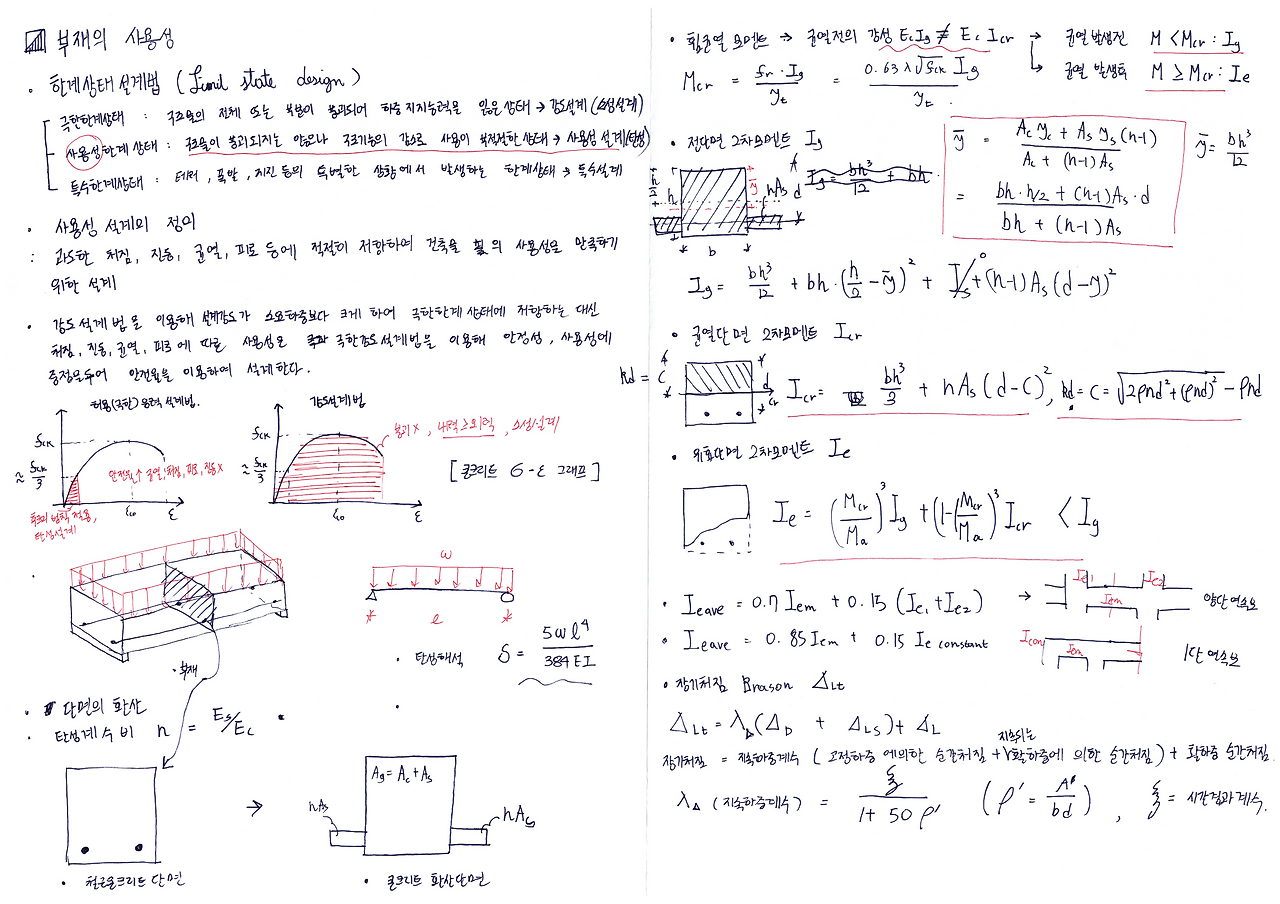 부재의 사용성
· 한계상태설계법 (Limit state design)
극한한계상태 : 구조물의 전체 또는 부분이 붕괴되어 하중지지능력을 잃은상태 → 강도설계(소성설계)
사용성한계상태 : 구조물이 붕괴되지는 않으나 구조기능의 감소로 사용이 부적절한상태 → 사용성설계(탄성)
특수한계상태 : 테러, 폭발, 지진 등의 특별한 상황에서 발생하는 한계상태 → 특수설계
· 사용성 설계의 정의
: 과도한 처짐, 진동, 균열, 피로 등에 적절히 저항하여 건축물의 사용성을 만족하기
위한 설계
· 강도설계법을 이용해 설계강도가 소요하중보다 크게 하여 극한한계상태에 저항하는 대신
처짐, 진동, 균열, 피로에 따른 사용성은 극한강도설계법을 이용해 안정성, 사용성에
중점을두어 안전율을 이용하여 설계한다.
허용(극한)응력설계법.
fck
≈ fck/3
안전율↑ 균열, 처짐, 피로, 진동 X
εco
ε
후크의 법칙 적용,
탄성설계
강도설계법
fck
≈ fck/3
붕괴X, 내력≥외력, 소성설계
εco
ε
[콘크리트 σ-ε 그래프]
· 부재
ω
ℓ
· 탄성해석 δ = 5ωℓ⁴/384EI
· 단면의 환산
· 탄성계수비 n = Es/Ec
· 철근콘크리트단면
→
Ag = Ac + As
nAs
nAs
· 콘크리트 환산단면
· 휨균열모멘트 → 균열전의 강성 EcIg ≠ EcIcr → 균열발생전 M < Mcr : Ig
↳ 균열 발생후 M ≥ Mcr : Ie
Mcr = fr·Ig/yt = 0.63λ√fck Ig/yt.
· 전단면 2차모멘트 Ig
h/2
h
ȳ
nAs
d
b
Ig = bh³/12 + bh·
ȳ = Ac yc + As ys(n-1)/Ac + (n-1)As
= bh·h/2 + (n-1)As·d/bh + (n-1)As
ȳ = bh³/12
Ig = bh³/12 + bh·(h/2 - ȳ)² + Is⁰ + (n-1)As(d-y)²
· 균열단면 2차모멘트 Icr
kd = C
d
Icr = bh³/3 + nAs(d-C)², kd = C = √2ρnd²+(ρnd)² - ρnd
· 유효단면 2차모멘트 Ie
Ie = (Mcr/Ma)³Ig + (1-(Mcr/Ma)³Icr < Ig
· Ieave = 0.7 Iem + 0.15 (Ie1 + Ie2) →
Ie1
Iem
Ie2
양단연속보
· Ieave = 0.85 Iem + 0.15 Ie constant
Icon
Iem
1단 연속보
· 장기처짐 Brason ΔLt
ΔLt = λΔ(ΔD + ΔLS) + ΔL
지속되는
장기처짐 = 지속하중계수 ( 고정하중 에의한 순간처짐 + 활하중에 의한 순간처짐) + 활하중 순간처짐.
λΔ (지속하중계수) = ξ/1+50ρ' (ρ' = A'/bd), ξ = 시간경과계수.